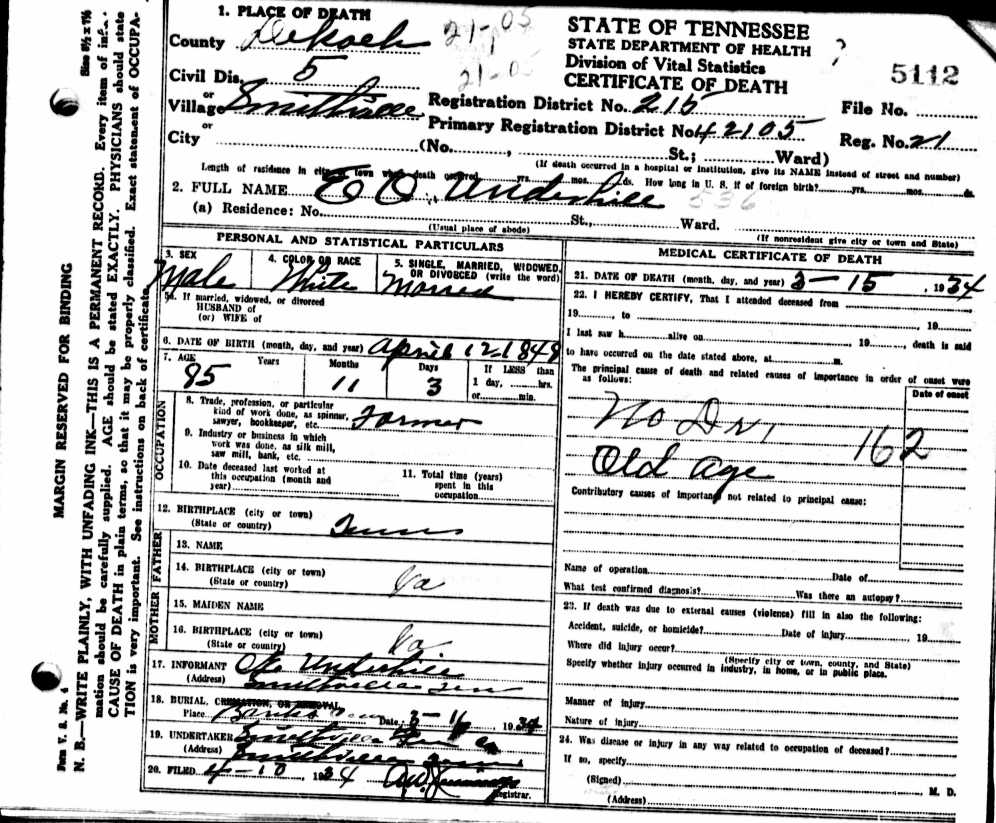 1. PLACE OF DEATH
County Dekalb 21-05
Civil Dis. 5 21-05
or
Village Smithville
or
City (No. , St.; Ward)
STATE OF TENNESSEE
STATE DEPARTMENT OF HEALTH
Division of Vital Statistics
CERTIFICATE OF DEATH
?
5112
Registration District No. 215 File No.
Primary Registration District No. 42105 Reg. No. 21
(If death occurred in a hospital or institution, give its NAME instead of street and number)
Length of residence in city or town where death occurred yrs. mos. ds. How long in U. S. if of foreign birth? yrs. mos. ds.
2. FULL NAME E D. Underhill 536
(a) Residence: No. St., Ward.
(Usual place of abode) (If nonresident give city or town and State)
PERSONAL AND STATISTICAL PARTICULARS
3. SEX 4. COLOR OR RACE 5. SINGLE, MARRIED, WIDOWED, OR DIVORCED (write the word)
Male White
5a. If married, widowed, or divorced
HUSBAND of
(or) WIFE of
6. DATE OF BIRTH (month, day, and year) April 12-1848
7. AGE Years Months Days If LESS than
1 day, hrs.
or min.
85 11 3
OCCUPATION
8. Trade, profession, or particular
kind of work done, as spinner,
sawyer, bookkeeper, etc. Farmer
9. Industry or business in which
work was done, as silk mill,
saw mill, bank, etc.
10. Date deceased last worked at
this occupation (month and
year)
11. Total time (years)
spent in this
occupation
12. BIRTHPLACE (city or town)
(State or country) Tenn
FATHER
13. NAME
14. BIRTHPLACE (city or town)
(State or country) Va
MOTHER
15. MAIDEN NAME
16. BIRTHPLACE (city or town)
(State or country) Va
17. INFORMANT Underhill
(Address) Smithville Ten
18. BURIAL, CREMATION, OR REMOVAL
Place Date 3-16 1934
19. UNDERTAKER Smithville
(Address) Smithville
20. FILED 4-10 1934
Registrar.
MEDICAL CERTIFICATE OF DEATH
21. DATE OF DEATH (month, day, and year) 3-15, 1934
22. I HEREBY CERTIFY, That I attended deceased from
19 , to , 19
I last saw h alive on , 19 , death is said
to have occurred on the date stated above, at m.
The principal cause of death and related causes of importance in order of onset were
as follows: Date of onset
No Dr
162
Old age
Contributory causes of importance not related to principal cause:
Name of operation Date of
What test confirmed diagnosis? Was there an autopsy?
23. If death was due to external causes (violence) fill in also the following:
Accident, suicide, or homicide? Date of injury 19
Where did injury occur?
(Specify city or town, county, and State)
Specify whether injury occurred in industry, in home, or in public place.
Manner of injury
Nature of injury
24. Was disease or injury in any way related to occupation of deceased?
If so, specify
(Signed) , M. D.
(Address)
MARGIN RESERVED FOR BINDING
Form V. S. No. 4 Size 8½ x 7½
N. B.—WRITE PLAINLY, WITH UNFADING INK—THIS IS A PERMANENT RECORD. Every item of infor-
mation should be carefully supplied. AGE should be stated EXACTLY. PHYSICIANS should state
CAUSE OF DEATH in plain terms, so that it may be properly classified. Exact statement of OCCUPA-
TION is very important. See instructions on back of certificate.